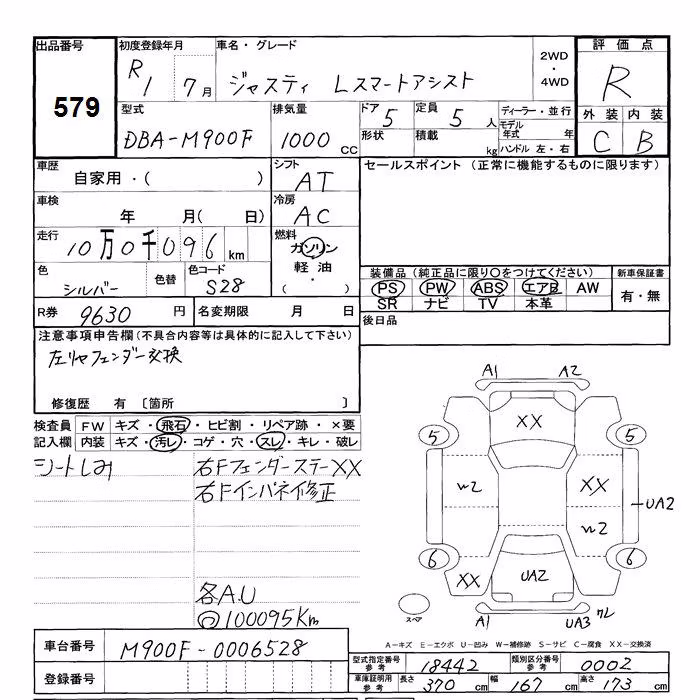 出品番号
579
初度登録年月
R1 7月
車名・グレード
ジャスティ Lスマートアシスト
2WD
・
4WD
評価点
R
外装 内装
C B
型式
DBA-M900F
排気量
1000 CC
ドア 5
定員 5 人
形状
積載 kg
ディーラー・並行
モデル
年式 年
ハンドル 左・右
車歴
自家用・( )
シフト
AT
セールスポイント (正常に機能するものに限ります)
車検
年 月( 日)
冷房
AC
走行
10万0千096 km
燃料
ガソリン
軽油
( ・ )
色
シルバー
色替
色コード
S28
装備品(純正品に限り〇をつけてください)
PS PW ABS エアB AW
SR ナビ TV 本革
新車保証書
有・無
R券 9630 円
名変期限 月 日
後日品
注意事項申告欄(不具合内容等は具体的に記入して下さい)
左リヤフェンダー交換
修復歴 有 〔箇所 〕
検査員 FW キズ・飛石・ヒビ割・リペア跡・×要
記入欄 内装 キズ・汚レ・コゲ・穴・スレ・キレ・破レ
シートしみ
右Fフェンダーステー XX
右Fインパネイ修正
各A.U
100095Km
A1 A2
XX
5 5
W2 XX
UA2
W2
6 6
XX UA2
A1 UA3 ワレ
スペア
A-キズ E-エクボ U-凹み W-補修跡 S-サビ C-腐食 XX-交換済
車台番号 M900F-0006528
登録番号
型式指定番号
参考 18442
類別区分番号
参考 0002
車庫証明用
参考 長さ 370 cm 幅 167 cm 高さ 173 cm